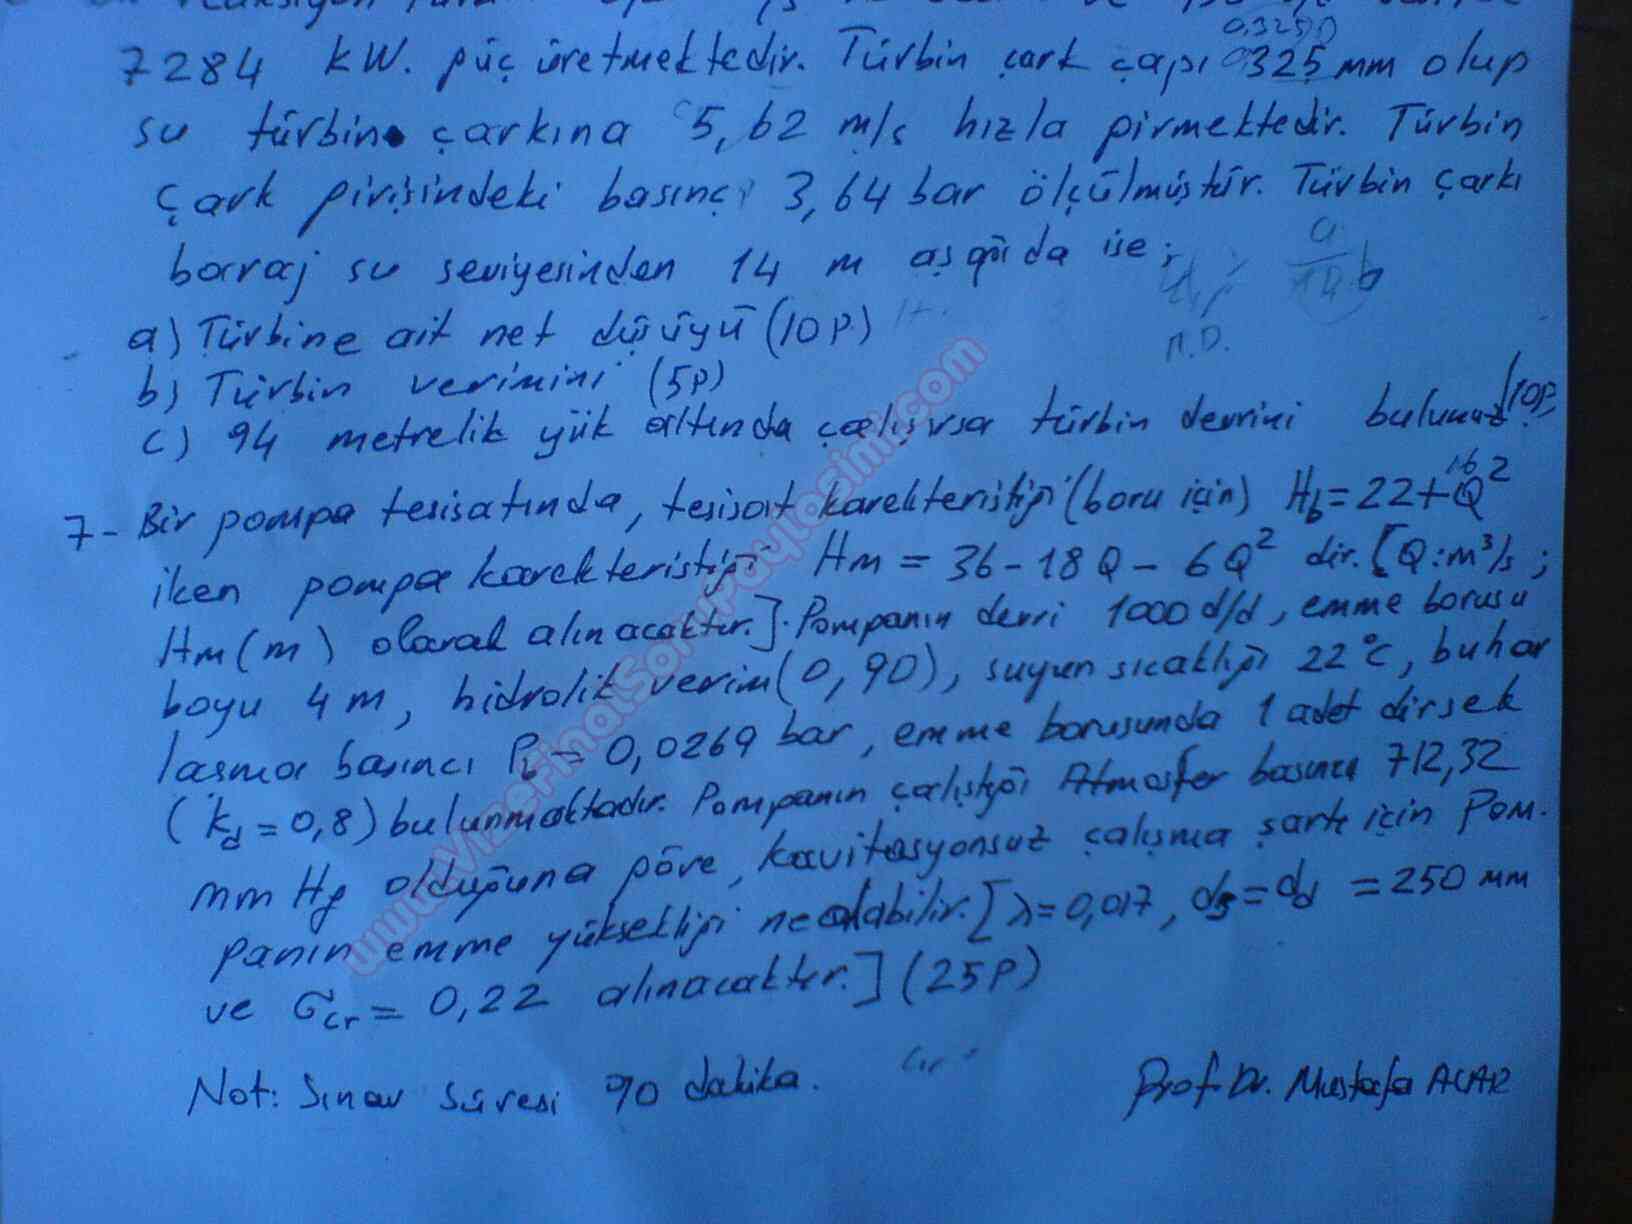 7284 kW. güç üretmektedir. Türbin çark çapı 325 mm olup
su türbin çarkına 5,62 m/s hızla girmektedir. Türbin
çark girişindeki basınç 3,64 bar ölçülmüştür. Türbin çarkı
baraj su seviyesinden 14 m aşağıda ise;
a) Türbine ait net düşüyü (10P.)
b) Türbin verimini (5P)
c) 94 metrelik yük altında çalışırsa türbin devrini bulunuz. (10P.
7- Bir pompa tesisatında, tesisat karekteristiği (boru için) Hb = 22+16Q²
iken pompa karekteristiği Hm = 36-18Q-6Q² dir. [Q:m³/s;
Hm(m) olarak alınacaktır.]. Pompanın devri 1000 d/d, emme borusu
boyu 4m, hidrolik verim(0,90), suyun sıcaklığı 22°C, buhar
laşma basıncı Pb = 0,0269 bar, emme borusunda 1 adet dirsek
(kd=0,8) bulunmaktadır. Pompanın çalıştığı Atmosfer basıncı 712,32
mm Hg olduğuna göre, kavitasyonsuz çalışma şartı için Pom-
panın emme yüksekliği ne olabilir. [λ=0,017, ds=dd = 250 mm
ve σcr = 0,22 alınacaktır.] (25P)
Not: Sınav süresi 90 dakika.
Prof. Dr. Mustafa ACAR
www.VizeFinalSoruPaylasimi.com